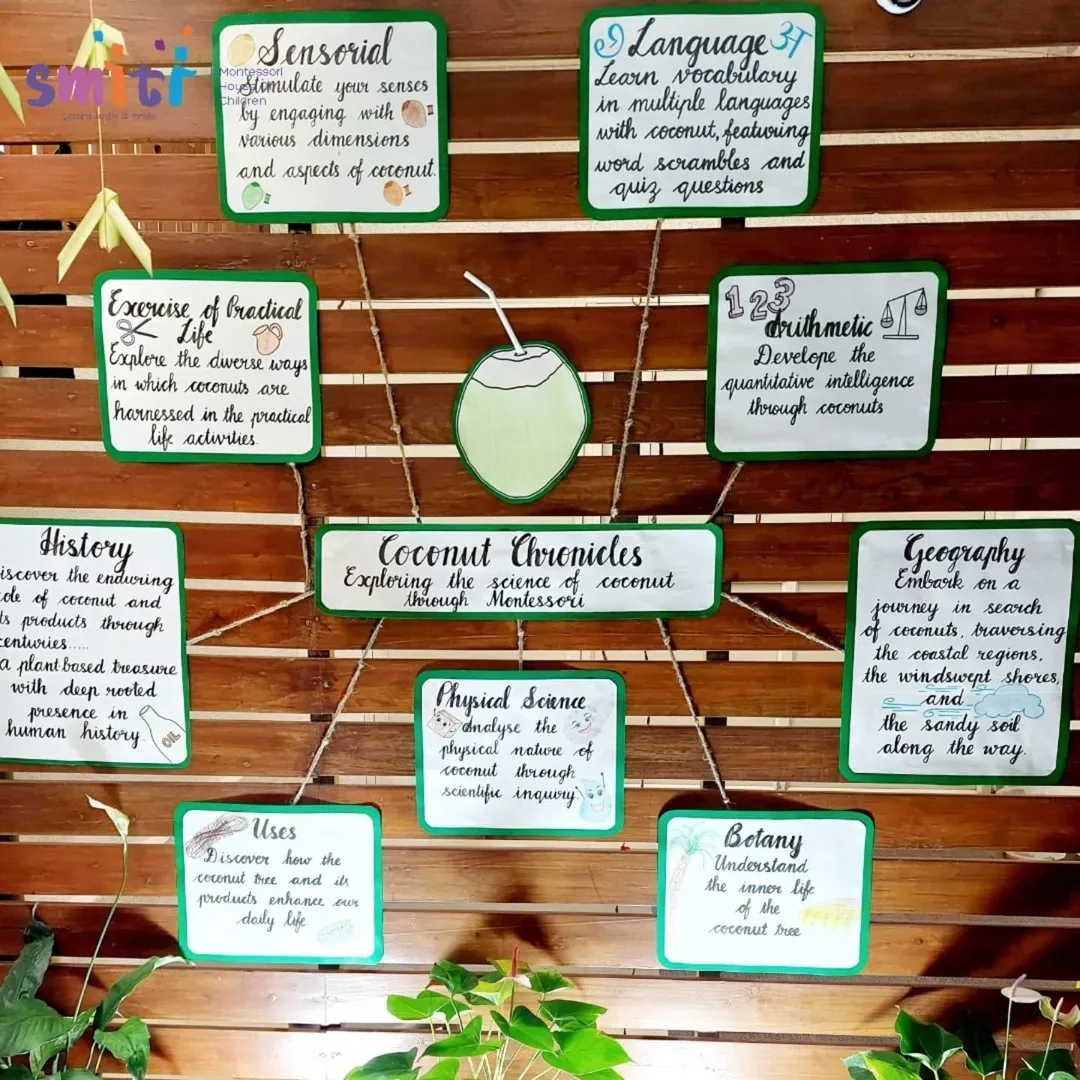 smiti
Montessori
House
Children
Sensorial
Stimulate your senses
by engaging with
various dimensions
and aspects of coconut.
Language अ
Learn vocabulary
in multiple languages
with coconut, featuring
word scrambles and
quiz questions
Exercise of Practical
Life
Explore the diverse ways
in which coconuts are
harnessed in the practical
life activities.
123
Arithmetic
Develope the
quantitative intelligence
through coconuts
Coconut Chronicles
Exploring the science of coconut
through Montessori
History
iscover the enduring
ole of coconut and
ts products through
centuries.....
a plant based treasure
with deep rooted
presence in
human history.
OIL
Geography
Embark on a
journey in search
of coconuts, traversing
the coastal regions,
the windswept shores,
and
the sandy soil
along the way.
Physical Science
Analyse the
physical nature of
coconut through
scientific inquiry.
Uses
Discover how the
coconut tree and its
products enhance our
daily life
Botany
Understand
the inner life
of the
coconut tree